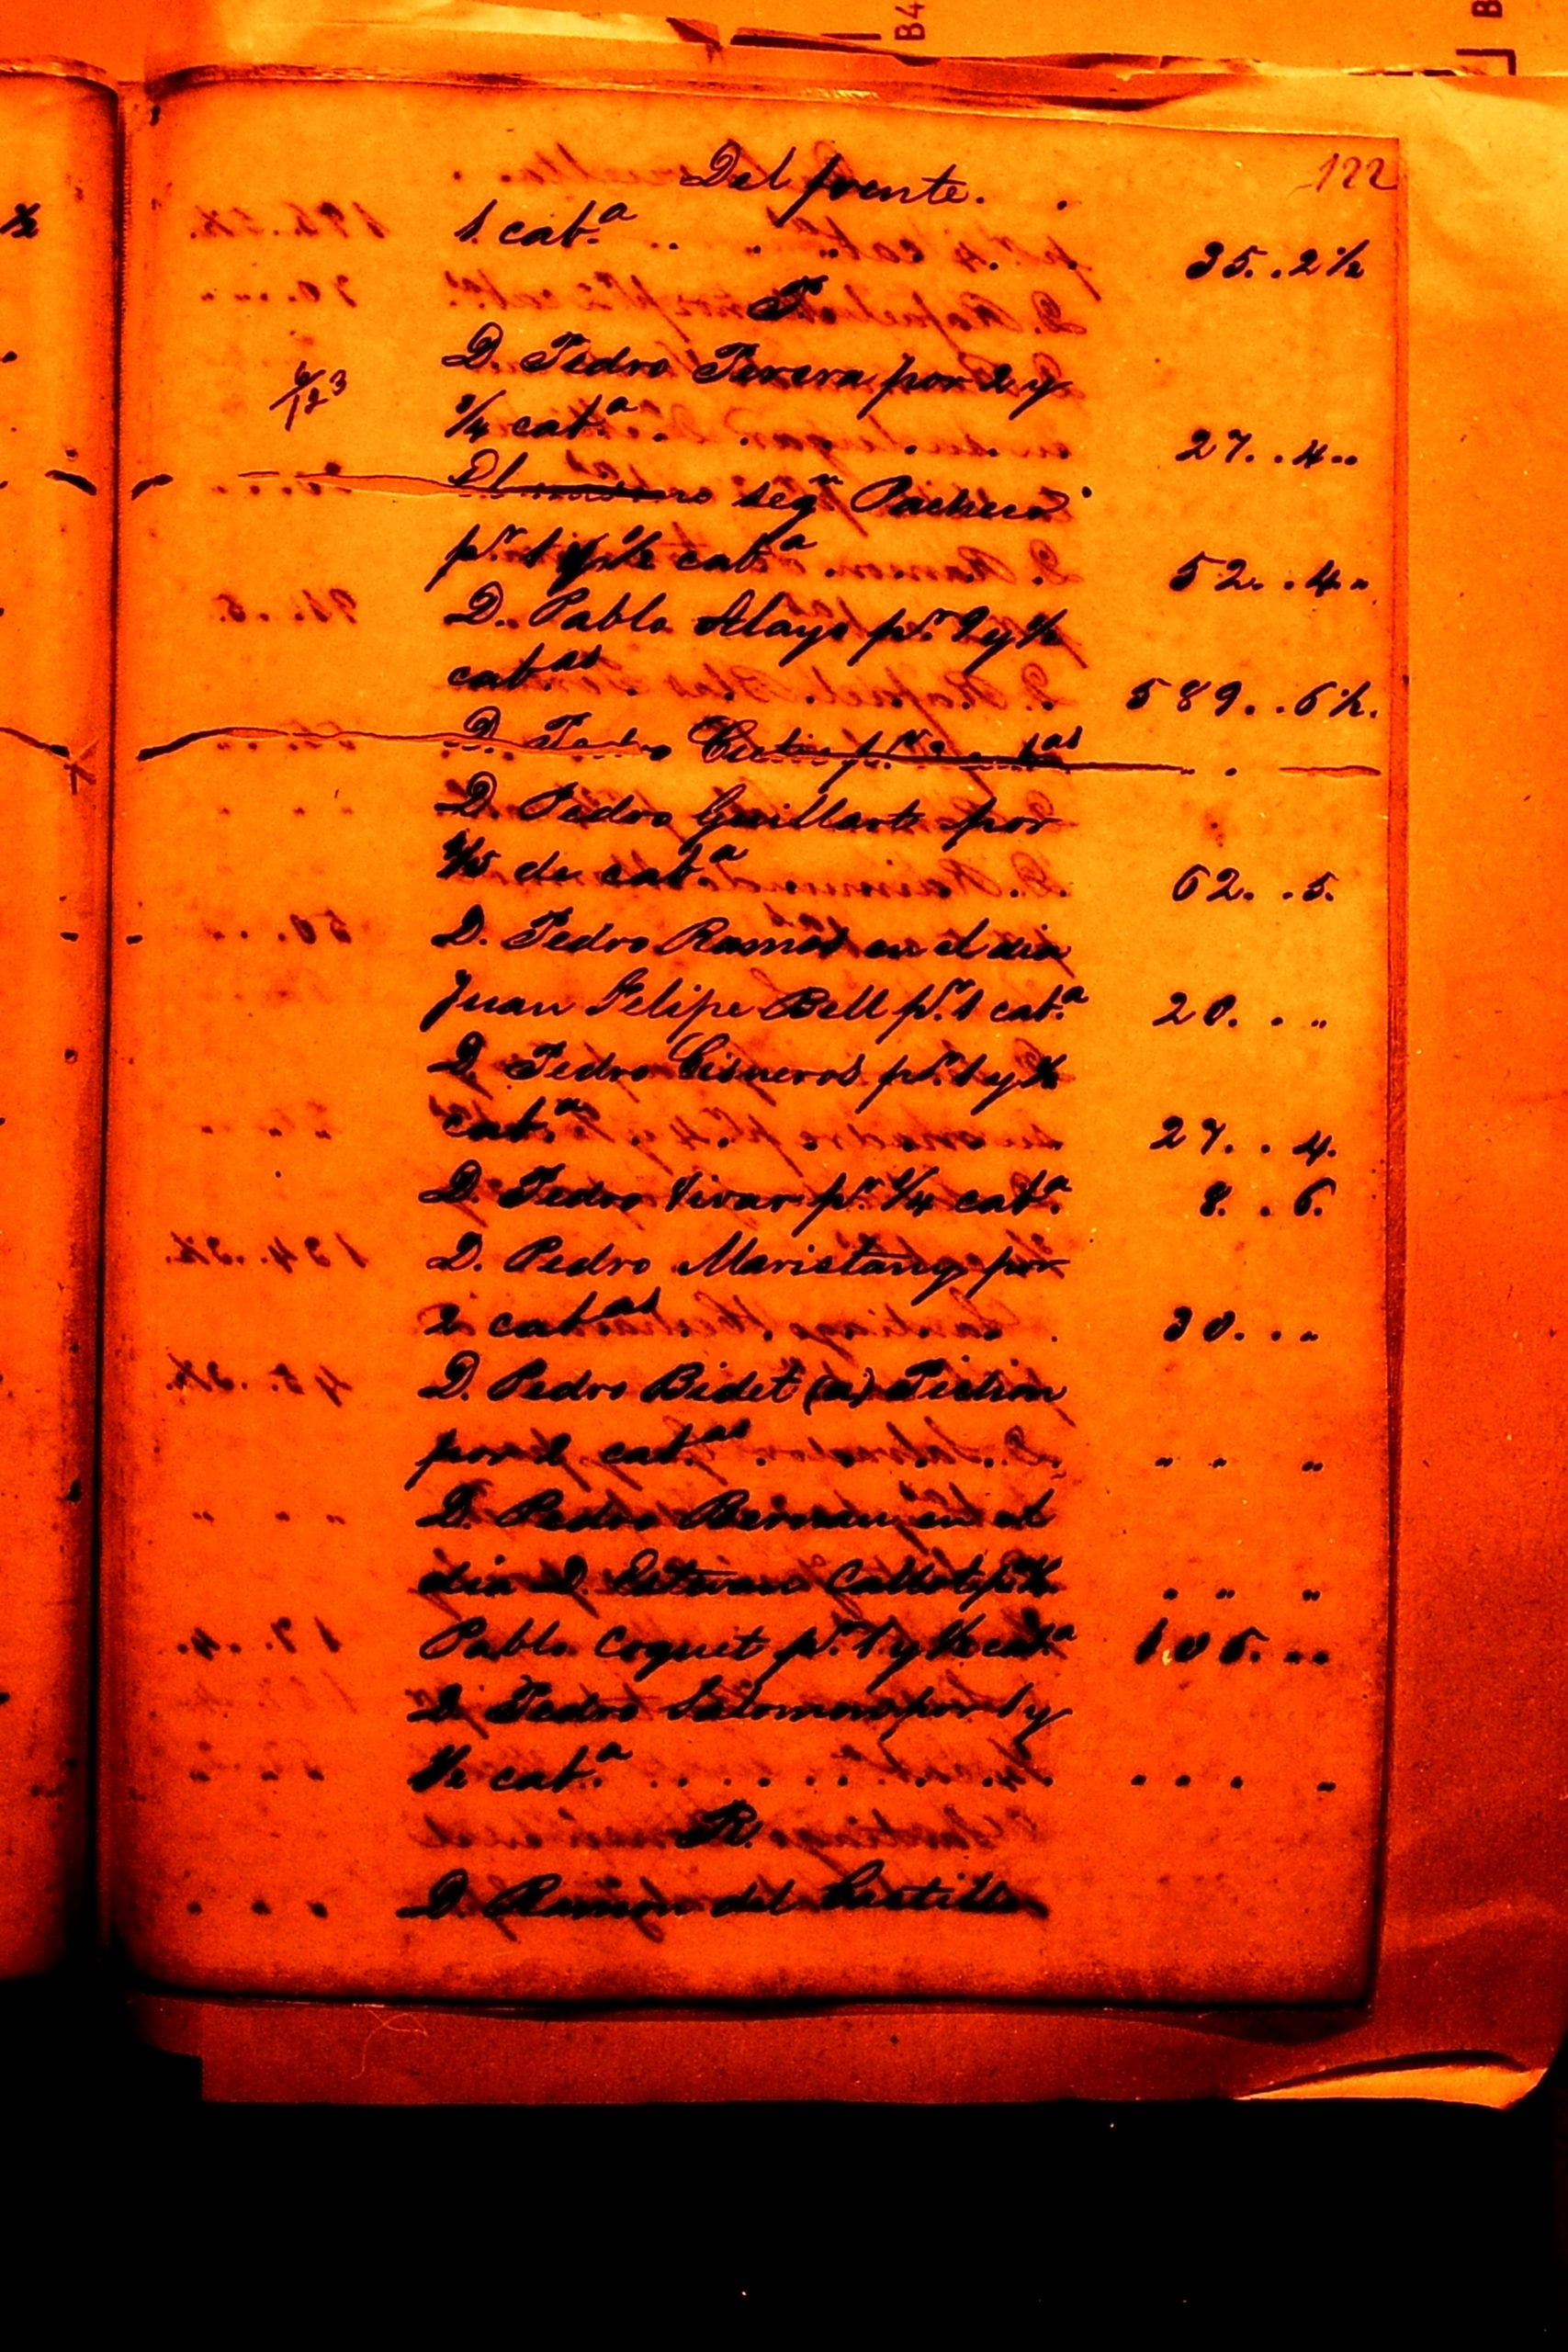 122
Del frente.
1. cat.ª 35. . 2 ½
P.
D. Pedro Perera por 2 y
¼ cat.ª 27. . 4 "
El segn Pacheco
pr. 1 y ½ cat.ª 52. . 4 "
D. Pablo Alayo pr. 9 y ½
cat.as 589. . 6 ½.
D. Pedro
D. Pedro Guillart por
de cat.ª 62. . 5.
D. Pedro Ramos en el dia
Juan Felipe Bell pr. 1 cat.ª 20. . "
D. Pedro Cisneros pr. 1 y ½
cat.ª 27. . 4.
D. Pedro Vivar pr. ¼ cat.ª 8. . 6.
D. Pedro Maristany por
2 cat.as 30. . "
D. Pedro Bidet (a)
por 2 cat.as " " "
D. Pedro en el
dia D. Estevan " " "
Pablo Coquet pr. 1 y ½ cat.ª 105. "
D. Pedro Salomon por 1 y
½ cat.ª " " " "
R.
D. Ramon del Castillo